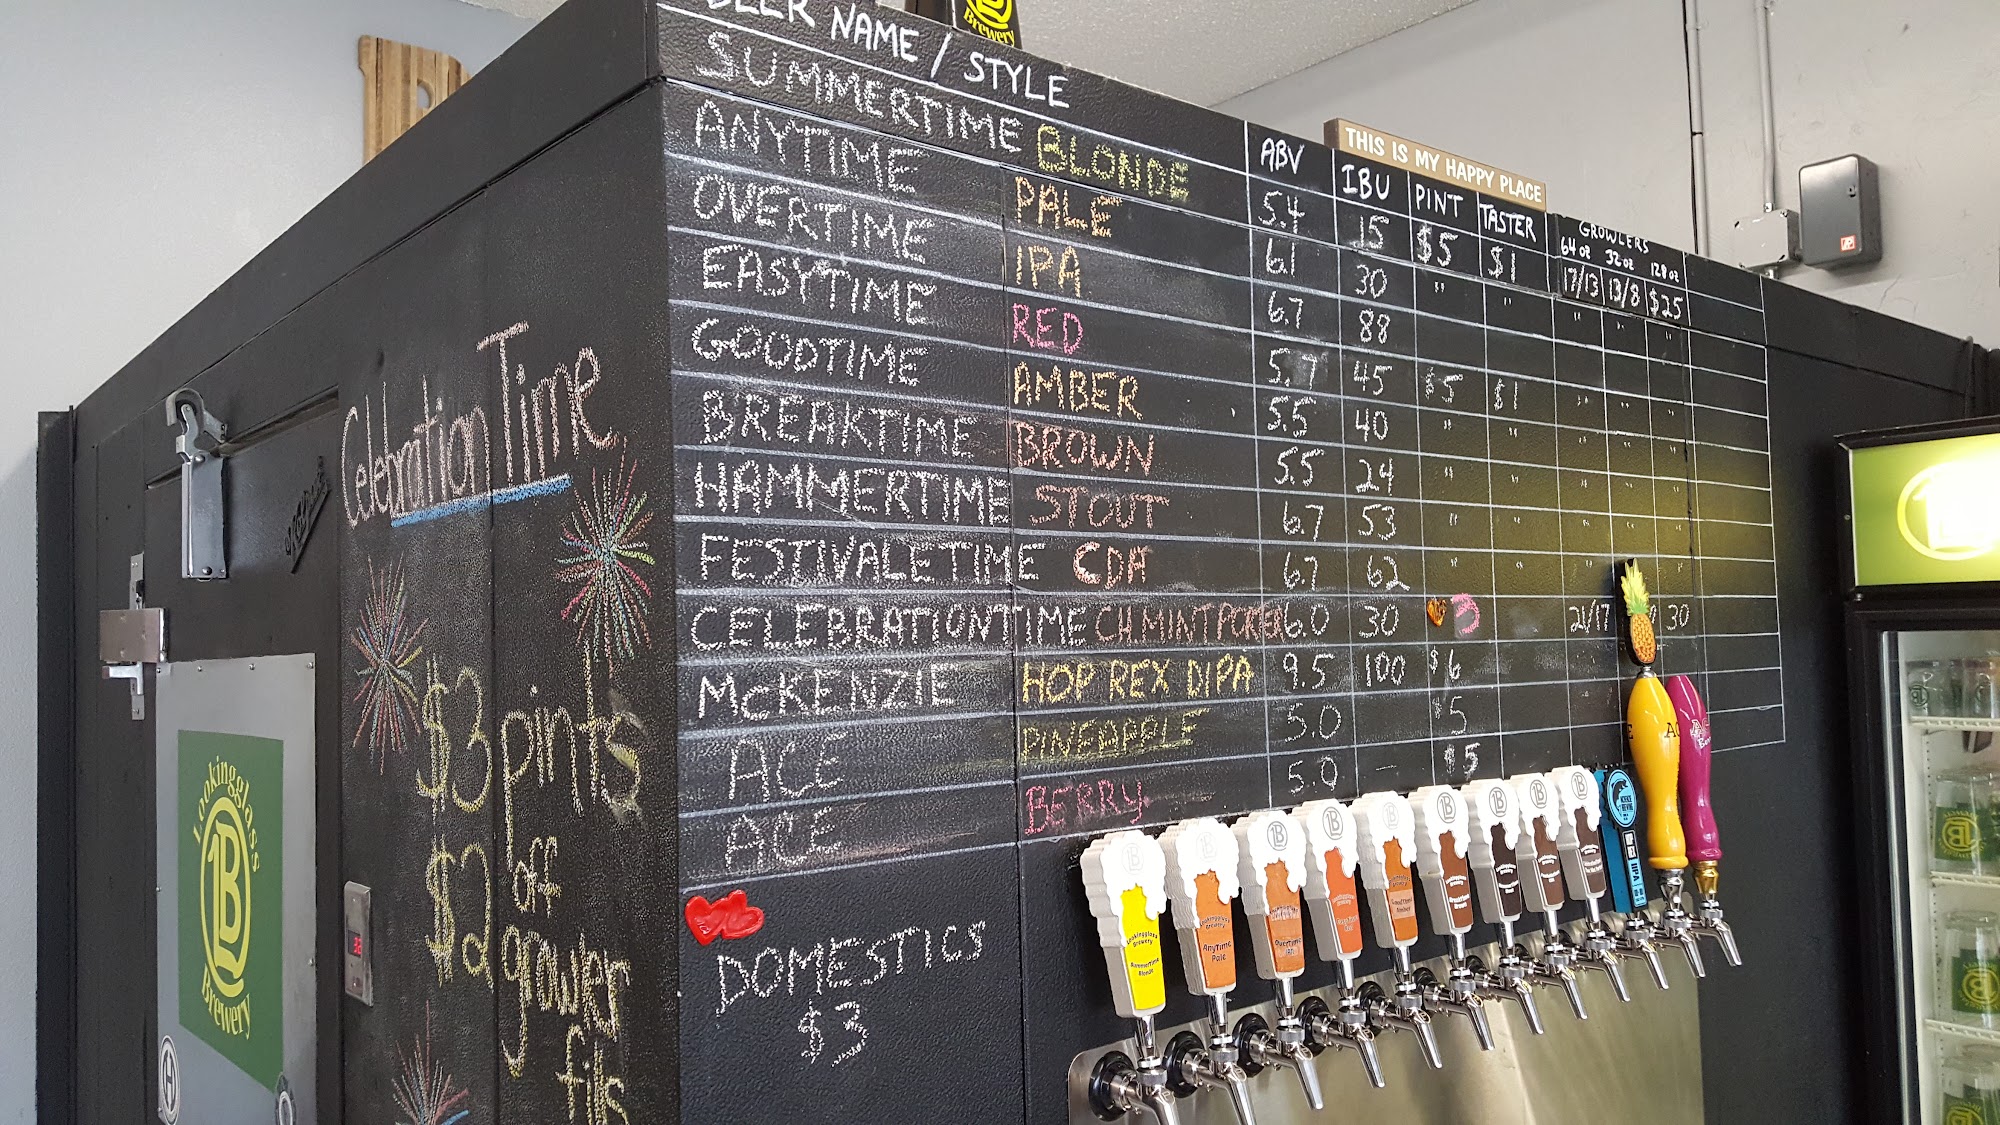 BEER NAME / STYLE ABV IBU PINT TASTER GROWLERS
64 oz 32 oz 128 oz
SUMMERTIME BLONDE 5.4 15 $5 $1 17/13 13/8 $25
ANYTIME PALE 6.1 30 " " " " "
OVERTIME IPA 6.7 88
EASYTIME RED 5.7 45 $5 $1 " " "
GOODTIME AMBER 5.5 40 " " " " "
BREAKTIME BROWN 5.5 24 " " " " "
HAMMERTIME STOUT 6.7 53 " " " " "
FESTIVALETIME CDA 6.7 62 " " " " "
CELEBRATIONTIME CH.MINT PORTER 6.0 30 21/17 30
MCKENZIE HOP REX DIPA 9.5 100 $6
ACE PINEAPPLE 5.0 $5
ACE BERRY 5.0 — $5
DOMESTICS
$3
THIS IS MY HAPPY PLACE
Brewery
Celebration Time
$3 pints
$2 off
growler
fills
Lookingglass
LB
Brewery
33
Lookingglass
Brewery
Summertime
Blonde
Lookingglass
Brewery
AnyTime
Pale
Overtime
IPA
HOP REX
DIPA
ACE